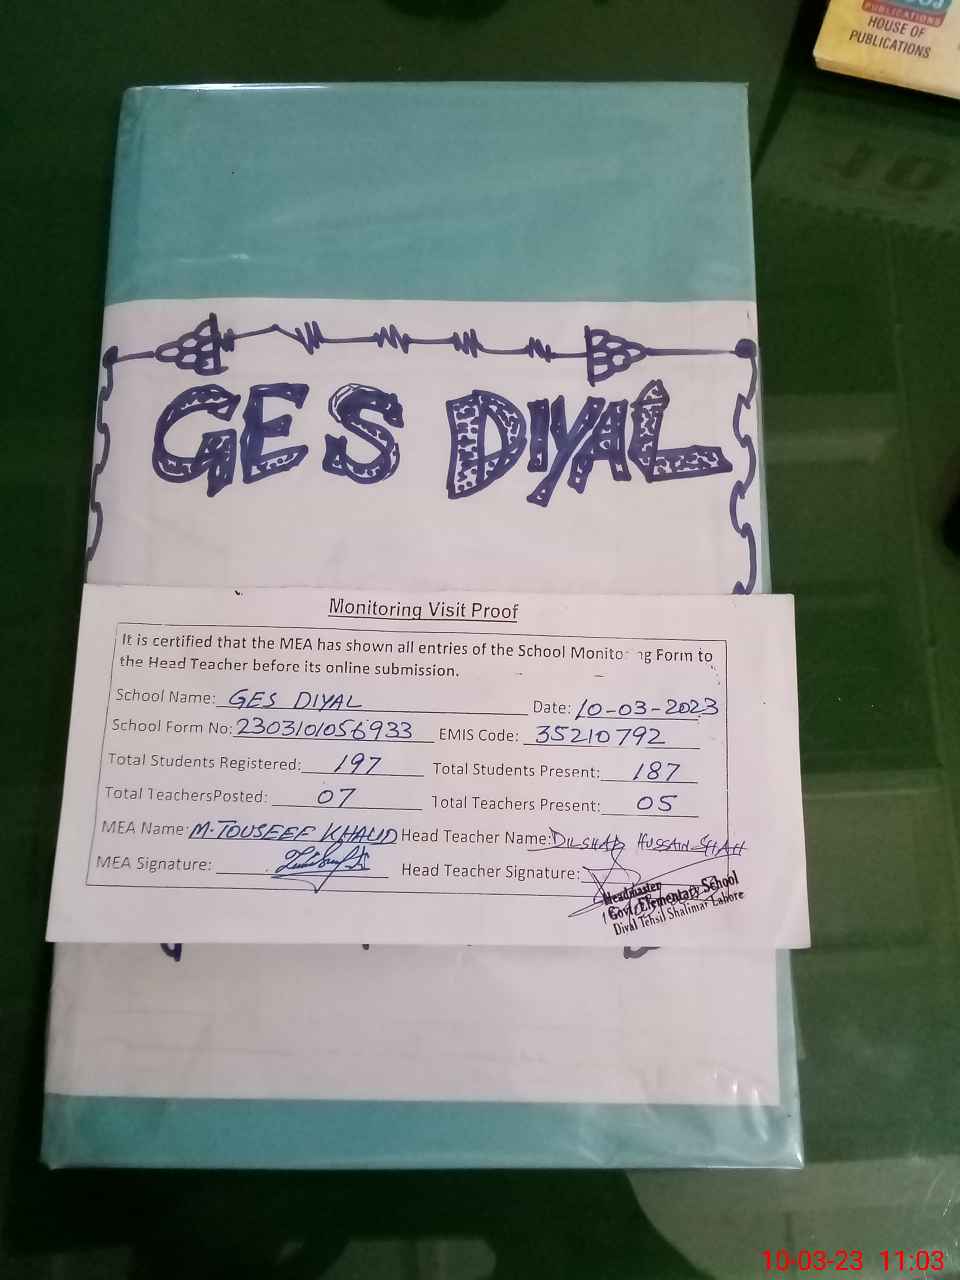 PUBLICATIONS
HOUSE OF
PUBLICATIONS
GES DIYAL
Monitoring Visit Proof
It is certified that the MEA has shown all entries of the School Monitoring Form to
the Head Teacher before its online submission.
School Name: GES DIYAL Date: 10-03-2023
School Form No: 2303101056933 EMIS Code: 35210792
Total Students Registered: 197 Total Students Present: 187
Total TeachersPosted: 07 Total Teachers Present: 05
MEA Name: M.TOUSEEF KHALID Head Teacher Name: DILSHAD HUSSAIN SHAH
MEA Signature: Head Teacher Signature:
Headmaster
Govt. Elementary School
Diyal Tehsil Shalimar Lahore
10-03-23 11:03